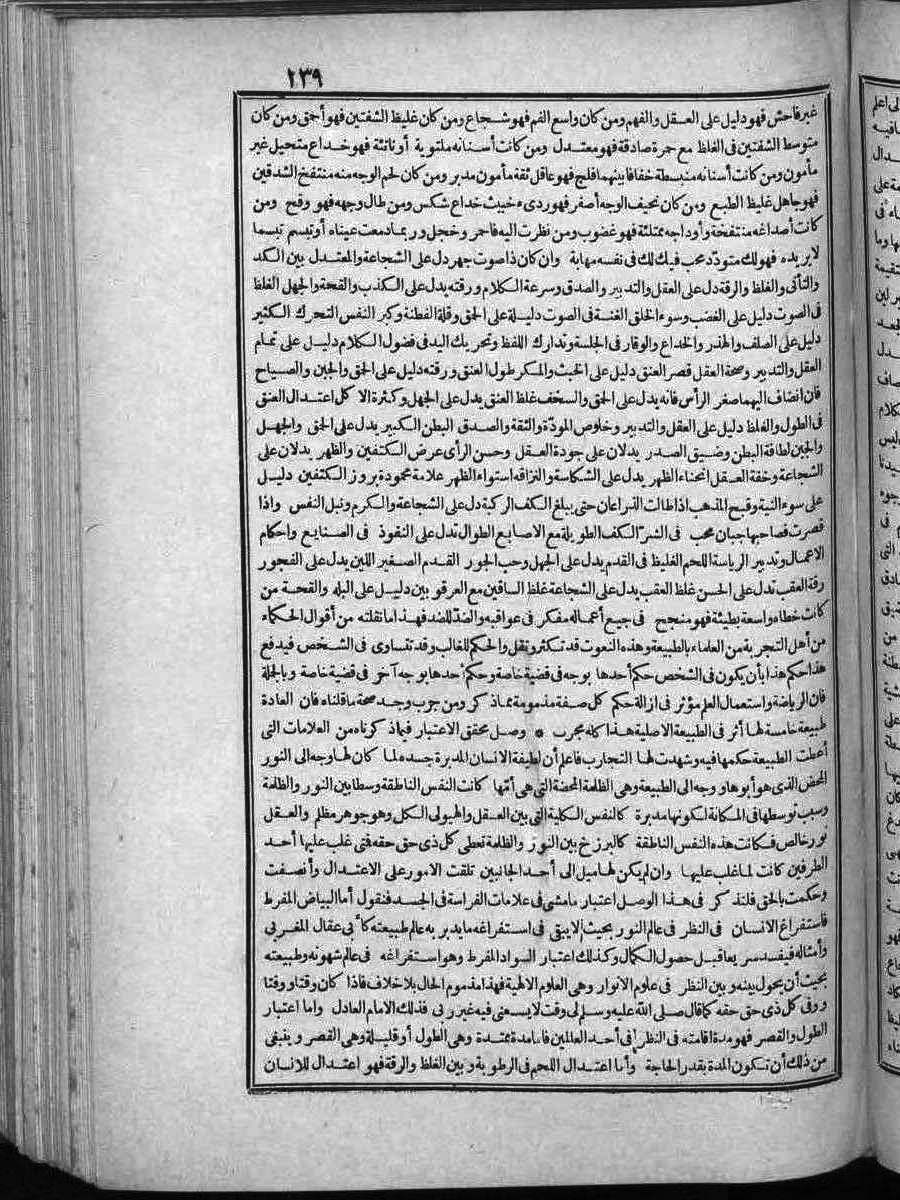 ١٣٩
غير فاحش فهو دليل على العقل والفهم ومن كان واسع الفم فهو شجاع ومن كان غليظ الشفتين فهو أحمق ومن كان
متوسط الشفتين فى الغلظ مع حمرة صادقة فهو معتدل ومن كانت أسنانه ملتوية أو ناتئة فهو خداع متحيل غير
مأمون ومن كانت أسنانه منبسطة خفافا بينهما فلج فهو عاقل ثقة مأمون مدبر ومن كان لحم الوجه منه منتفخ الشدقين
فهو جاهل غليظ الطبع ومن كان نحيف الوجه أصفر فهو ردىء خبيث خداع شكس ومن طال وجهه فهو وقح ومن
كانت أصداغه منتفخة وأوداجه ممتلئة فهو غضوب ومن نظرت اليه فاحمر وخجل وربما دمعت عيناه أو تبسم تبسما
لا يريده فهو لك متودد محب فيك لك فى نفسه مهابة وان كان ذا صوت جهر دل على الشجاعة والمعتدل بين الكد
والتأنى والغلظ والرقة دل على العقل والتدبير والصدق وسرعة الكلام ورقته يدل على الكذب والقحة والجهل الغلظ
فى الصوت دليل على الغضب وسوء الخلق الغنة فى الصوت دليلة على الحمق وقلة الفطنة وكبر النفس التحرك الكثير
دليل على الصلف والهذر والخداع والوقار فى الجلسة وتدارك اللفظ وتحريك اليد فى فضول الكلام دليل على تمام
العقل والتدبير وصحة العقل قصر العنق دليل على الخبث والمكر طول العنق ورقته دليل على الحمق والجبن والصياح
فان انضاف اليهما صغر الرأس فانه يدل على الحمق والسخف غلظ العنق يدل على الجهل وكثرة الاكل اعتدال العنق
فى الطول والغلظ دليل على العقل والتدبير وخلوص المودة والثقة والصدق البطن الكبير يدل على الحمق والجهل
والجبن لطافة البطن وضيق الصدر يدلان على جودة العقل وحسن الرأى عرض الكتفين والظهر يدلان على
الشجاعة وخفة العقل انحناء الظهر يدل على الشكاسة والنزاقة استواء الظهر علامة محمودة بروز الكتفين دليل
على سوء النية وقبح المذهب اذا طالت الذراعان حتى يبلغ الكف الركبة دل على الشجاعة والكرم ونبل النفس واذا
قصرت فصاحبها جبان محب فى الشر الكف الطويلة مع الاصابع الطوال تدل على النفوذ فى الصنايع واحكام
الاعمال وتدبير الرياسة اللحم الغليظ فى القدم يدل على الجهل وحب الجور القدم الصغير اللين يدل على الفجور
رقة العقب تدل على الحسن غلظ العقب يدل على الشجاعة غلظ الساقين مع العرقوبين دليل على البله والقحة من
كانت خطاه واسعة بطيئة فهو منجح فى جميع أعماله مفكر فى عواقبه والضد للضد فهذا ما نقلته من أقوال الحكماء
من أهل التجربة من العلماء بالطبيعة وهذه النعوت قد تكثر وتقل والحكم للغالب وقد تتساوى فى الشخص فيدفع
هذا حكم هذا بأن يكون فى الشخص حكم أحدها بوجه فى قضية خاصة وحكم أحدها بوجه آخر فى قضية خاصة وبالجملة
فان الرياضة واستعمال العلم مؤثر فى ازالة حكم كل صفة مذمومة مما ذكر ومن جرب وجد صحة ما قلناه فان العادة
طبيعة خامسة لها أثر فى الطبيعة الاصلية هذا كله مجرب * وصل محقق الاعتبار فيما ذكرناه من العلامات التى
أعطت الطبيعة حكمها فيه وشهدت لها التجارب فاعلم أن لطيفة الانسان المدبرة جسده لما كان لها وجه الى النور
المحض الذى هو أبوها ووجه الى الطبيعة وهى الظلمة المحضة التى هى أمها كانت النفس الناطقة وسطا بين النور والظلمة
وسبب توسطها فى المكانة لكونها مدبرة كالنفس الكلية التى بين العقل والهيولى الكل وهو جوهر مظلم والعقل
نور خالص فكانت هذه النفس الناطقة كالبرزخ بين النور والظلمة تعطى كل ذى حق حقه فمتى غلب عليها أحد
الطرفين كانت لما غلب عليها وان لم يكن لها ميل الى أحد الجانبين تلقت الامور على الاعتدال وأنصفت
وحكمت بالحق فلنذكر فى هذا الوصل اعتبار ما مشى فى علامات الفراسة فى الجسد فنقول أما البياض المفرط
فاستفراغ الانسان فى النظر فى عالم النور بحيث لا يبقى فى استفراغه ما يدبر به عالم طبيعته كأبى عقال المغربى
وأمثاله فيفسد سريعا قبل حصول الكمال وكذلك اعتبار السواد المفرط وهو استفراغه فى عالم شهوته وطبيعته
بحيث أن يحول بينه وبين النظر فى علوم الانوار وهى العلوم الالهية فهذا مذموم الحال بلا خلاف فاذا كان وقتا ووقتا
ووفى كل ذى حق حقه كما قال صلى الله عليه وسلم لى وقت لا يسعنى فيه غير ربى فذلك الامام العادل واما اعتبار
الطول والقصر فهو مدة اقامته فى النظر فى أحد العالمين فاما مدة ممتدة وهى الطول أو قليلة وهى القصر وينبغى
من ذلك أن تكون المدة بقدر الحاجة وأما اعتدال اللحم فى الرطوبة وبين الغلظ والرقة فهو اعتدال للانسان